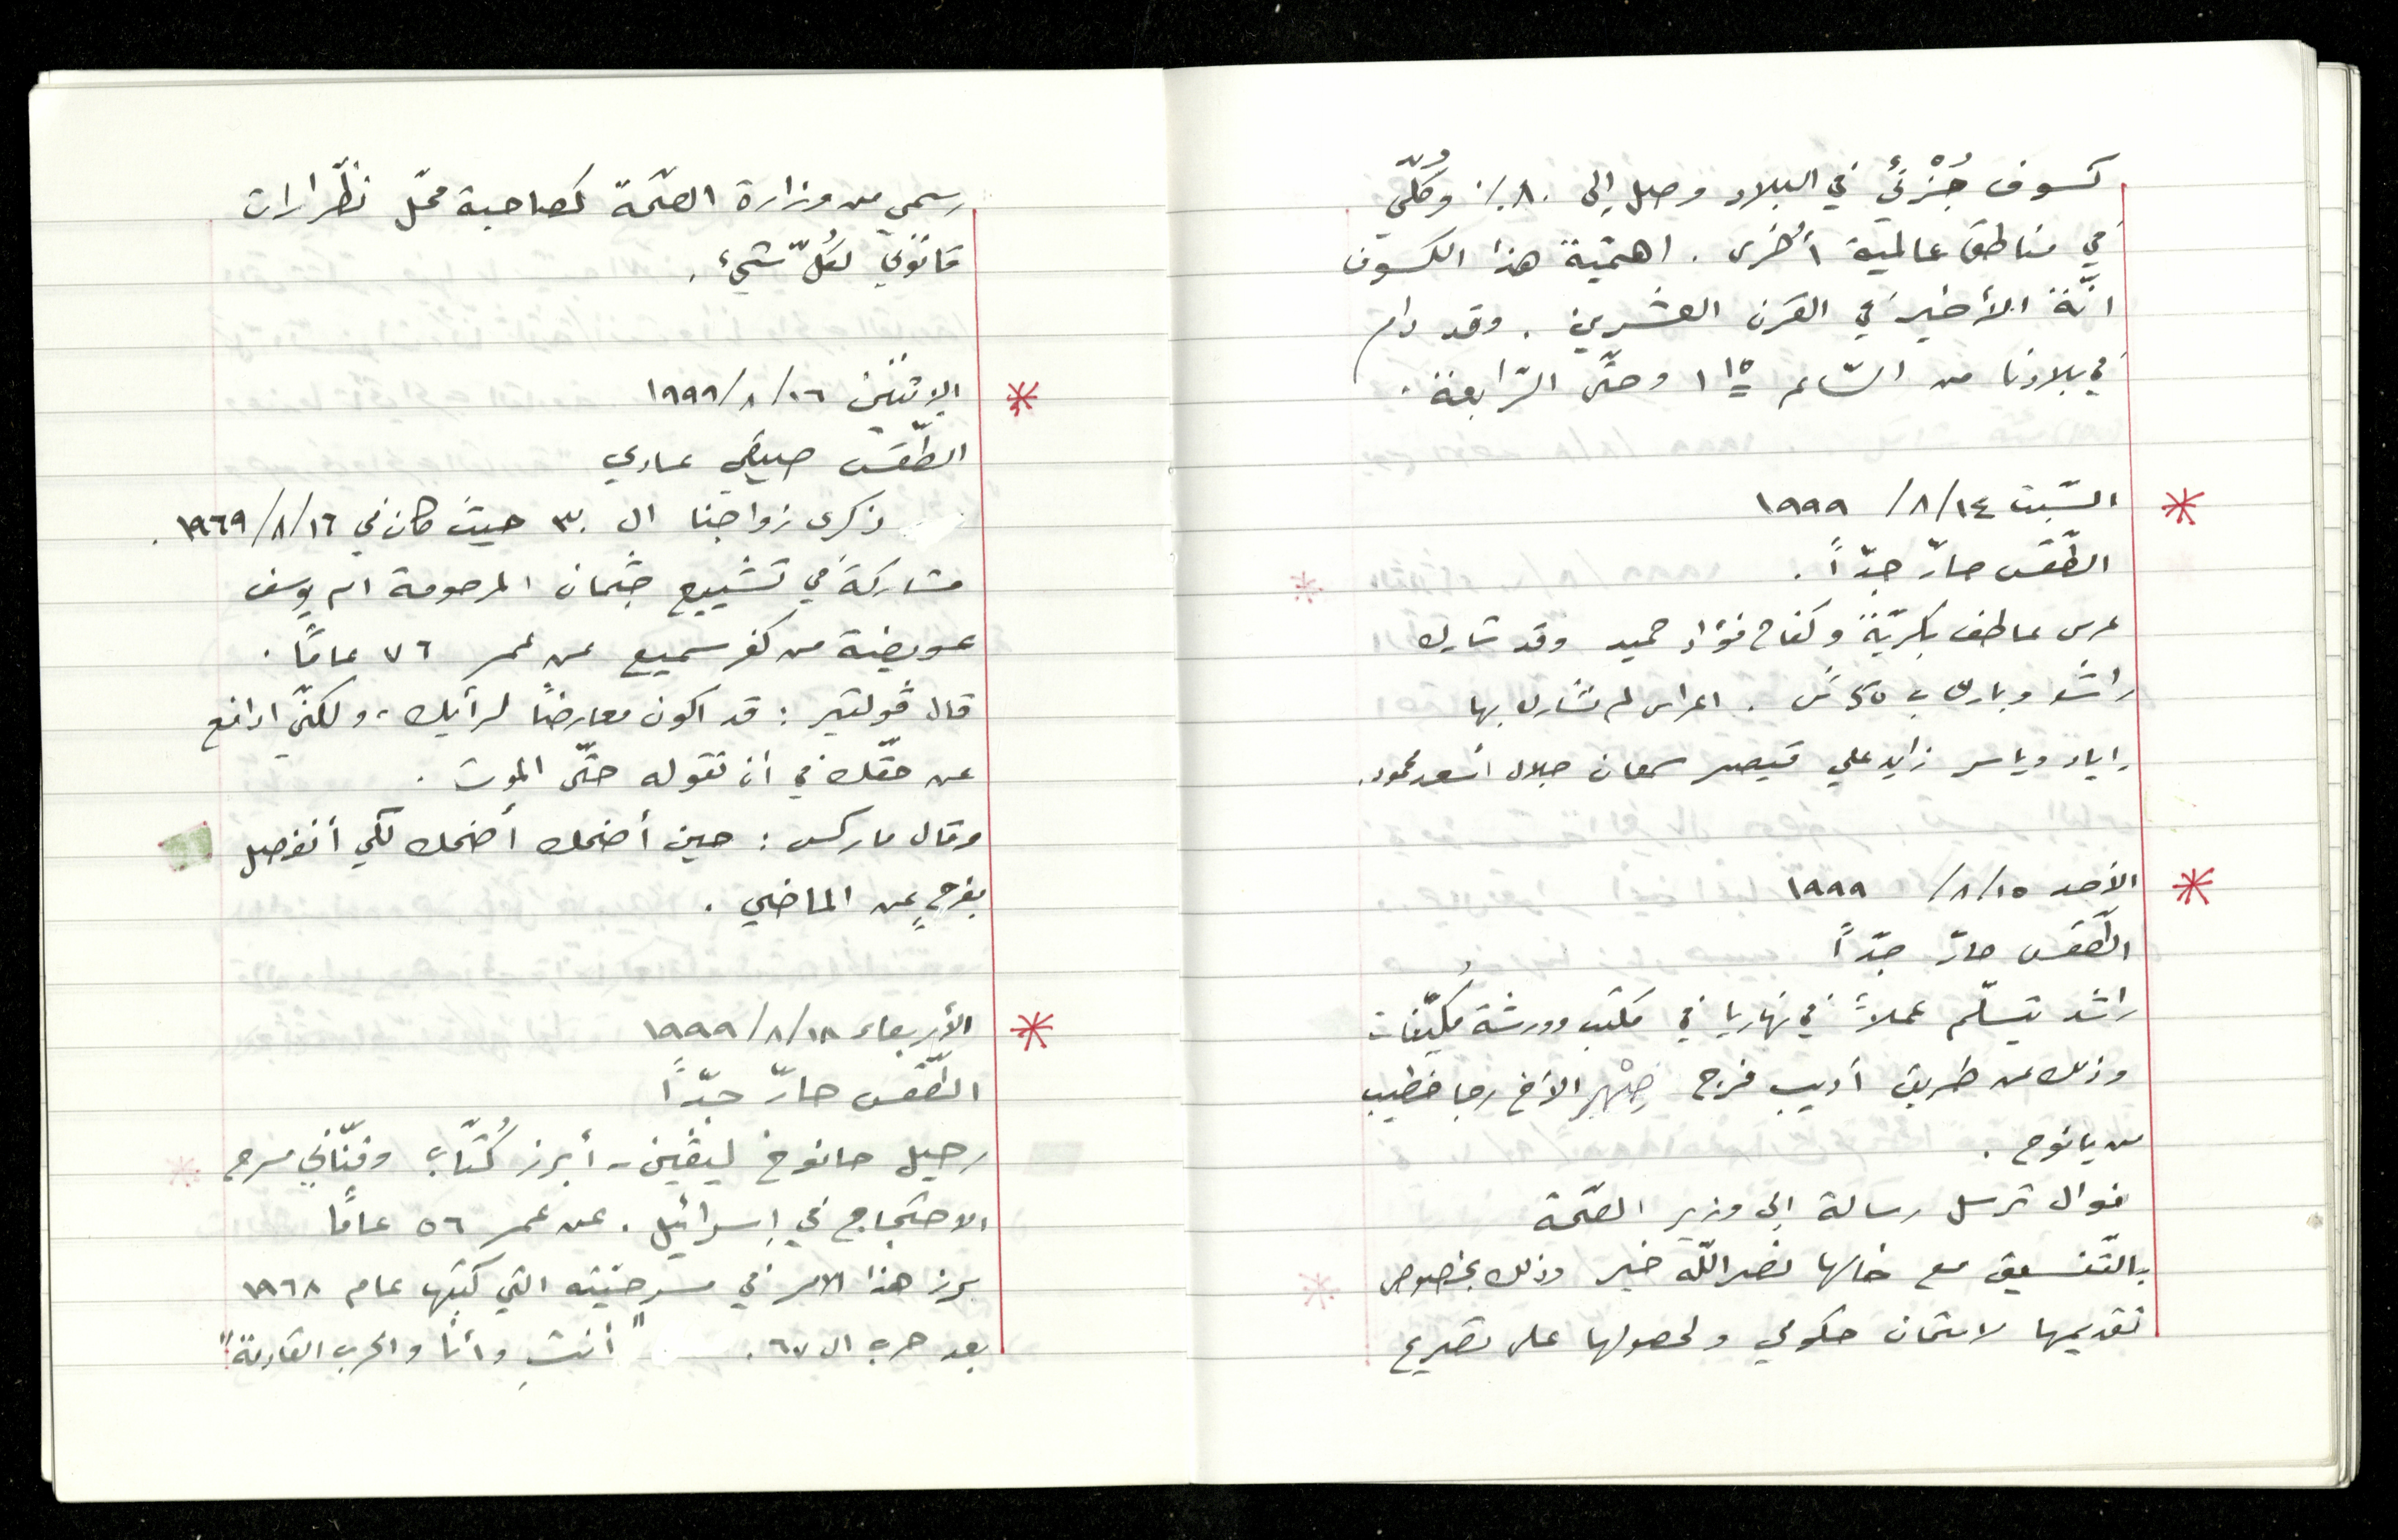 كسوف جُزْئيّ في البلاد وصل إلى ٨٠٪ وكُلّي
في مناطق عالمية أُخرى . اهميّة هذا الكسوف
انّه الأخير في القرن العشرين . وقد دام
في بلادنا من السّاعة ١ وحتّى الرّابعة .
* السّبت ١٤/٨/ ١٩٩٩
الطّقس حارّ جدّاً .
عرس عاطف بكريّة وكفاح فؤاد حميد وقد شارك
راشد وبارك ب . اعراس لم نشارك بها
إياد وياسر زايد علي قيصر سمعان جلال أسعد محمود .
* الأحد ١٥/٨/ ١٩٩٩
الطّقس حارّ جدّاً
راشد تسلّم عملاً في نهاريا في مكتب وورشة مُكيّفات
وذلك عن طريق أديب فرح صِهْر الأخ رجا خطيب
من يانوح .
نوال ترسل رسالة إلى وزير الصّحّة
بالتّنسيق مع خالها نصرالله خير وذلك بخصوص
تقديمها لامتحان حكومي ولحصولها على تصريح
رسمي من وزارة الصّحّة كصاحبة محّل نظّارات
قانوني لكُلّ شيء .
* الإثنين ١٦/٨/١٩٩٩
الطّقس صيفي عادي
ذكرى زواجنا ال ٣٠ حيث كان في ١٦/٨/١٩٦٩ .
مشاركة في تشييع جثمان المرحومة ام يوسف
عويضة من كفر سميع عن عمر ٧٦ عامًا .
قال ڤولتير : قد اكون معارضًا لرأيك ، ولكنّي ادافع
عن حقّك في أن تقوله حتّى الموت .
وقال ماركس : حين أضحك أضحك لكي أنفصل
بفرحٍ عن الماضي .
* الأربعاء ١٨/٨/١٩٩٩
الطّقس حارّ جدّاً
رحيل حانوخ ليڤين - أبرز كُتّاب وفنّاني مسرح
الاحتجاج في إسرائيل . عن عمر ٥٦ عامًا
برز هذا الامر في مسرحيّته التي كتبها عام ١٩٦٨
بعد حرب ال ٦٧ . "أنتِ وأنا والحرب القادمة"